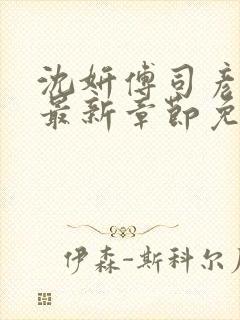 沈妍傅司彦
最新章节免
伊森-斯科尔